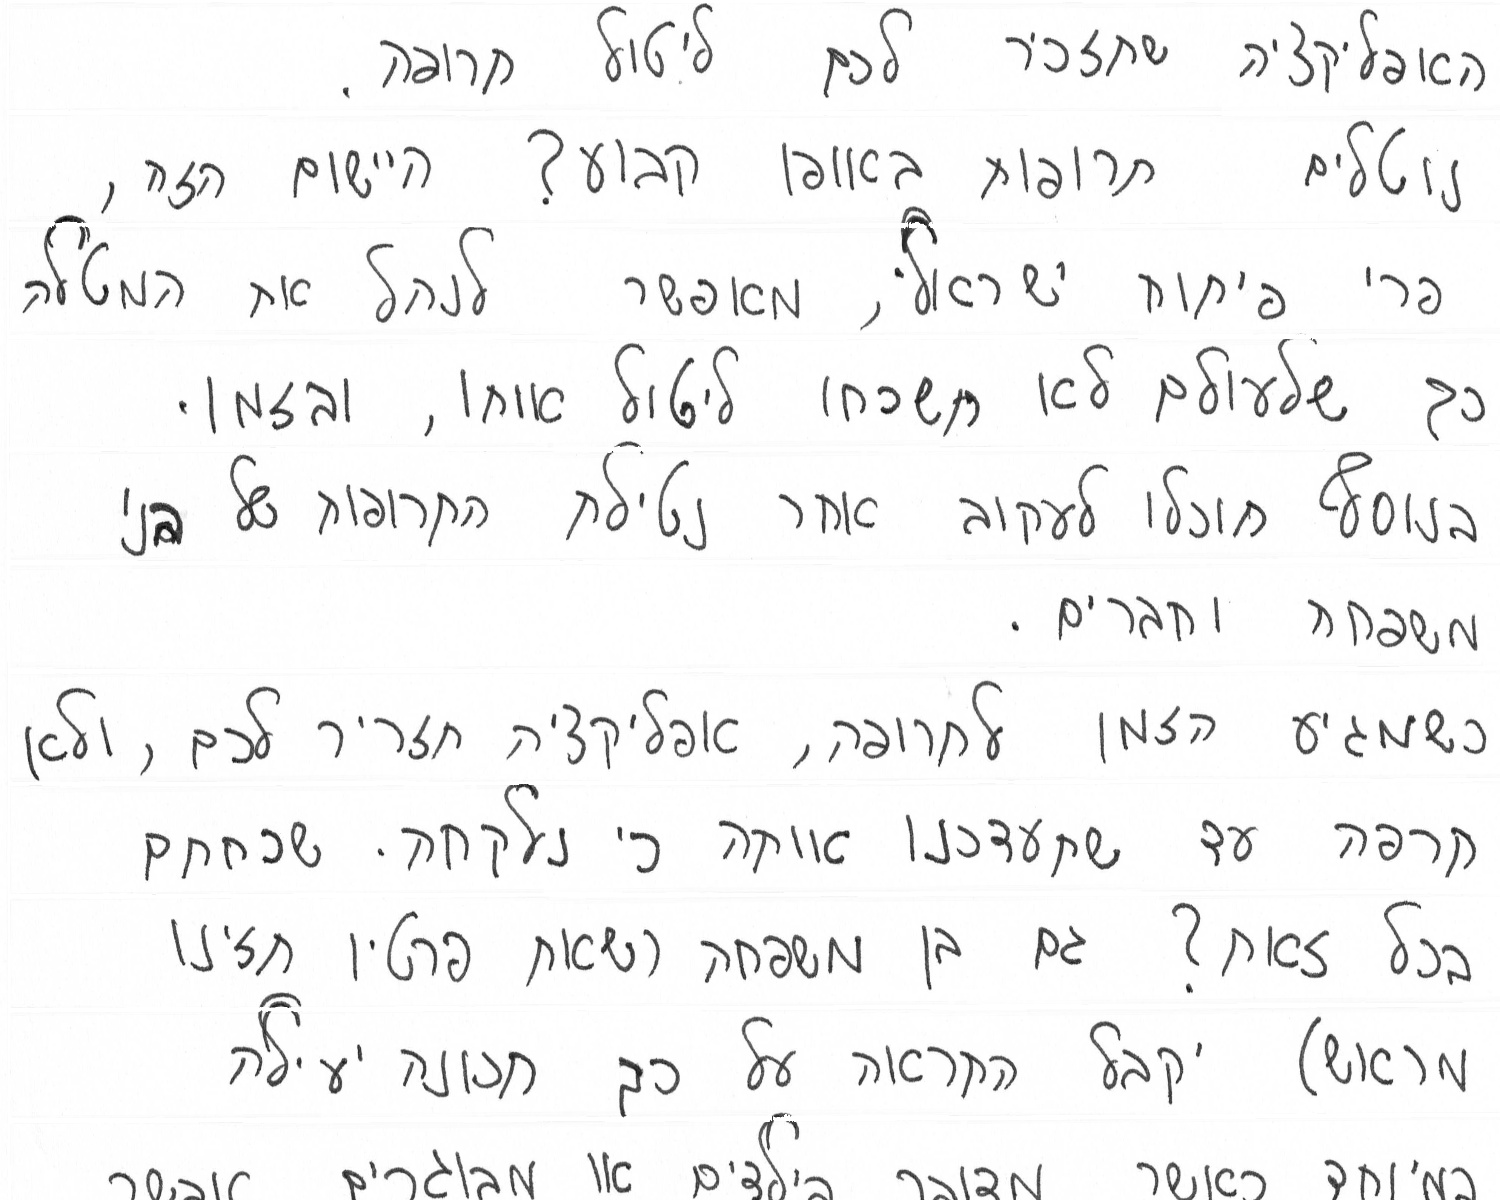 האפליקציה שתזכיר לכם ליטול תרופה.
נוטלים תרופות באופן קבוע? היישום הזה,
פרי פיתוח ישראלי, מאפשר לנהל את המטלה
כך שלעולם לא תשכחו ליטול אותו, ובזמן.
בנוסף תוכלו לעקוב אחר נטילת התרופות של בני
משפחה וחברים.
כשמגיע הזמן לתרופה, אפליקציה תזריר לכם, ולאן
תרפה עד שתעדכנו אותה כי נלקחה. שכחתם
בכל זאת? גם בן משפחה רשאת פרטיו תזינו
מראש) יקבל התראה על כך תכונה יעילה
במיוחד כאשר מדובר בילדים או מבוגרים אפשר